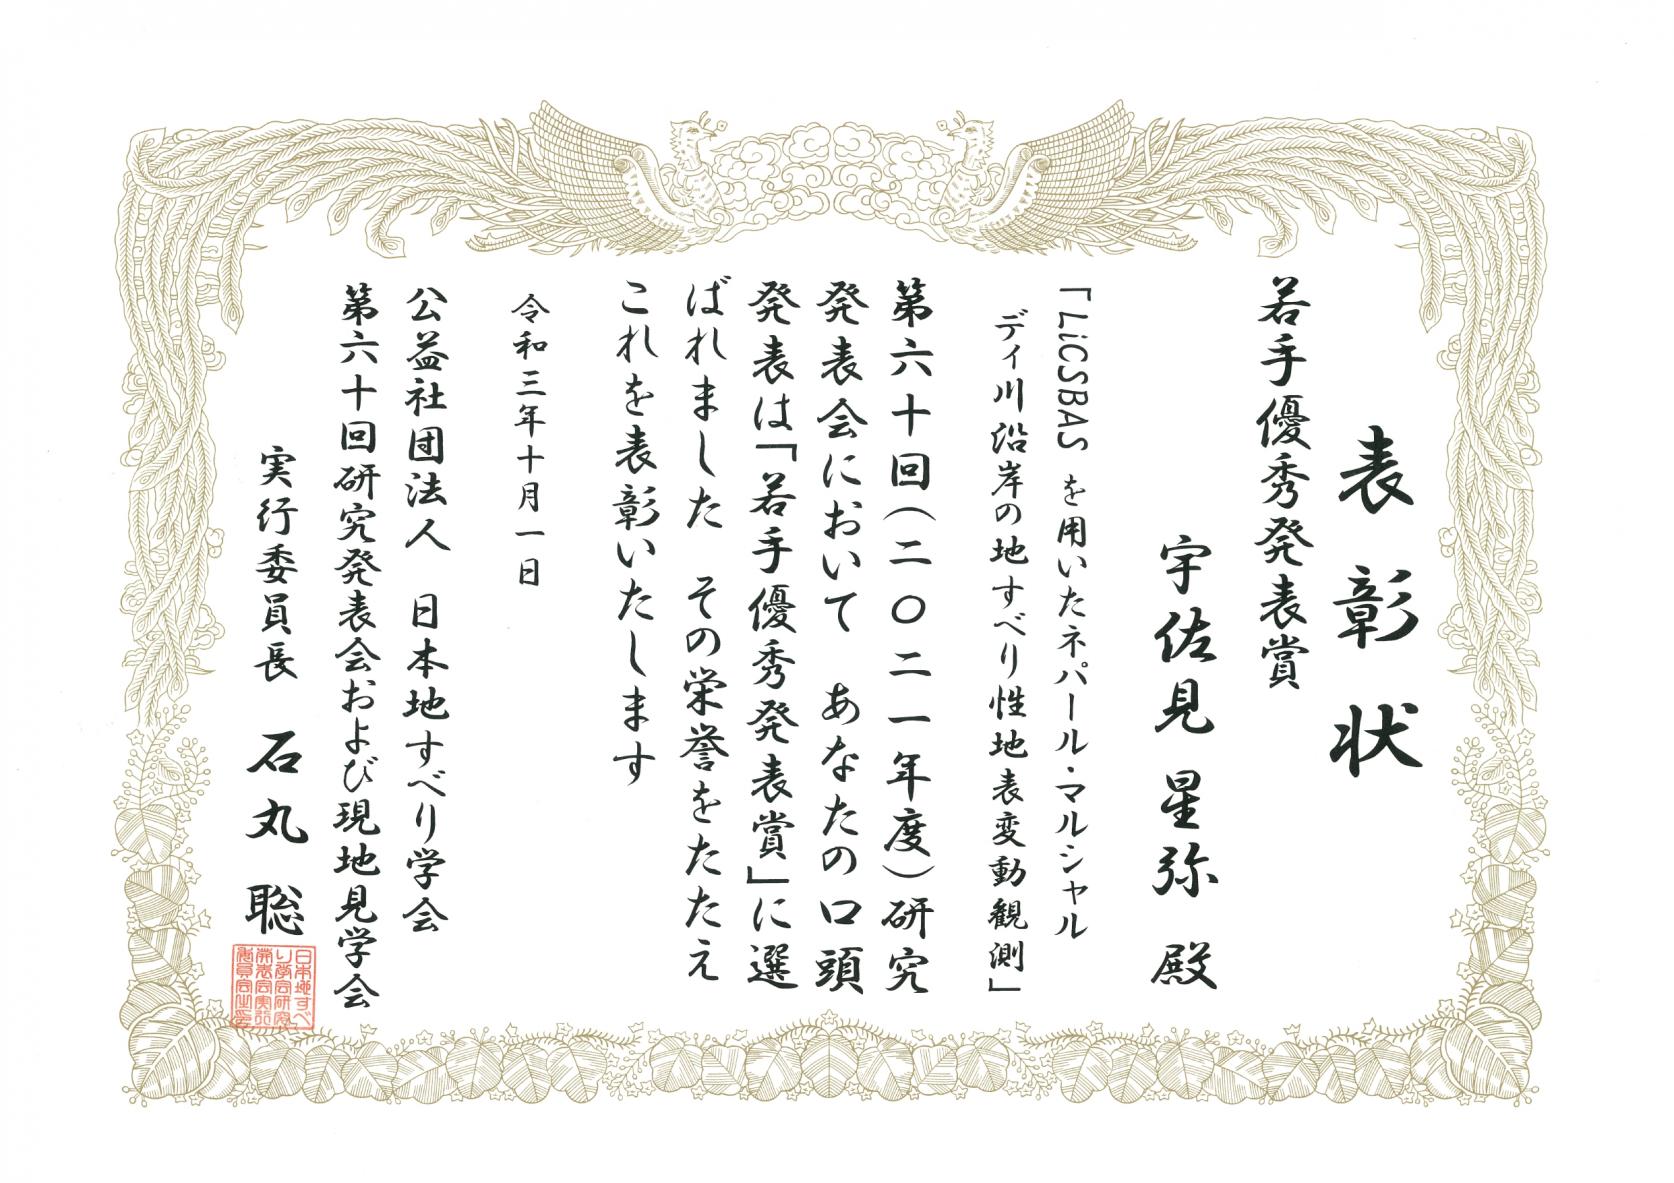 表彰状
若手優秀発表賞
宇佐見 星弥 殿
「LiCSBAS を用いたネパール・マルシャル
ディ川沿岸の地すべり性地表変動観測」
第六十回(二〇二一年度)研究
発表会において あなたの口頭
発表は「若手優秀発表賞」に選
ばれました その栄誉をたたえ
これを表彰いたします
令和三年十月一日
公益社団法人 日本地すべり学会
第六十回研究発表会および現地見学会
実行委員長 石丸 聡
日本地すべ
り学会研究
発表会実行
委員会之印